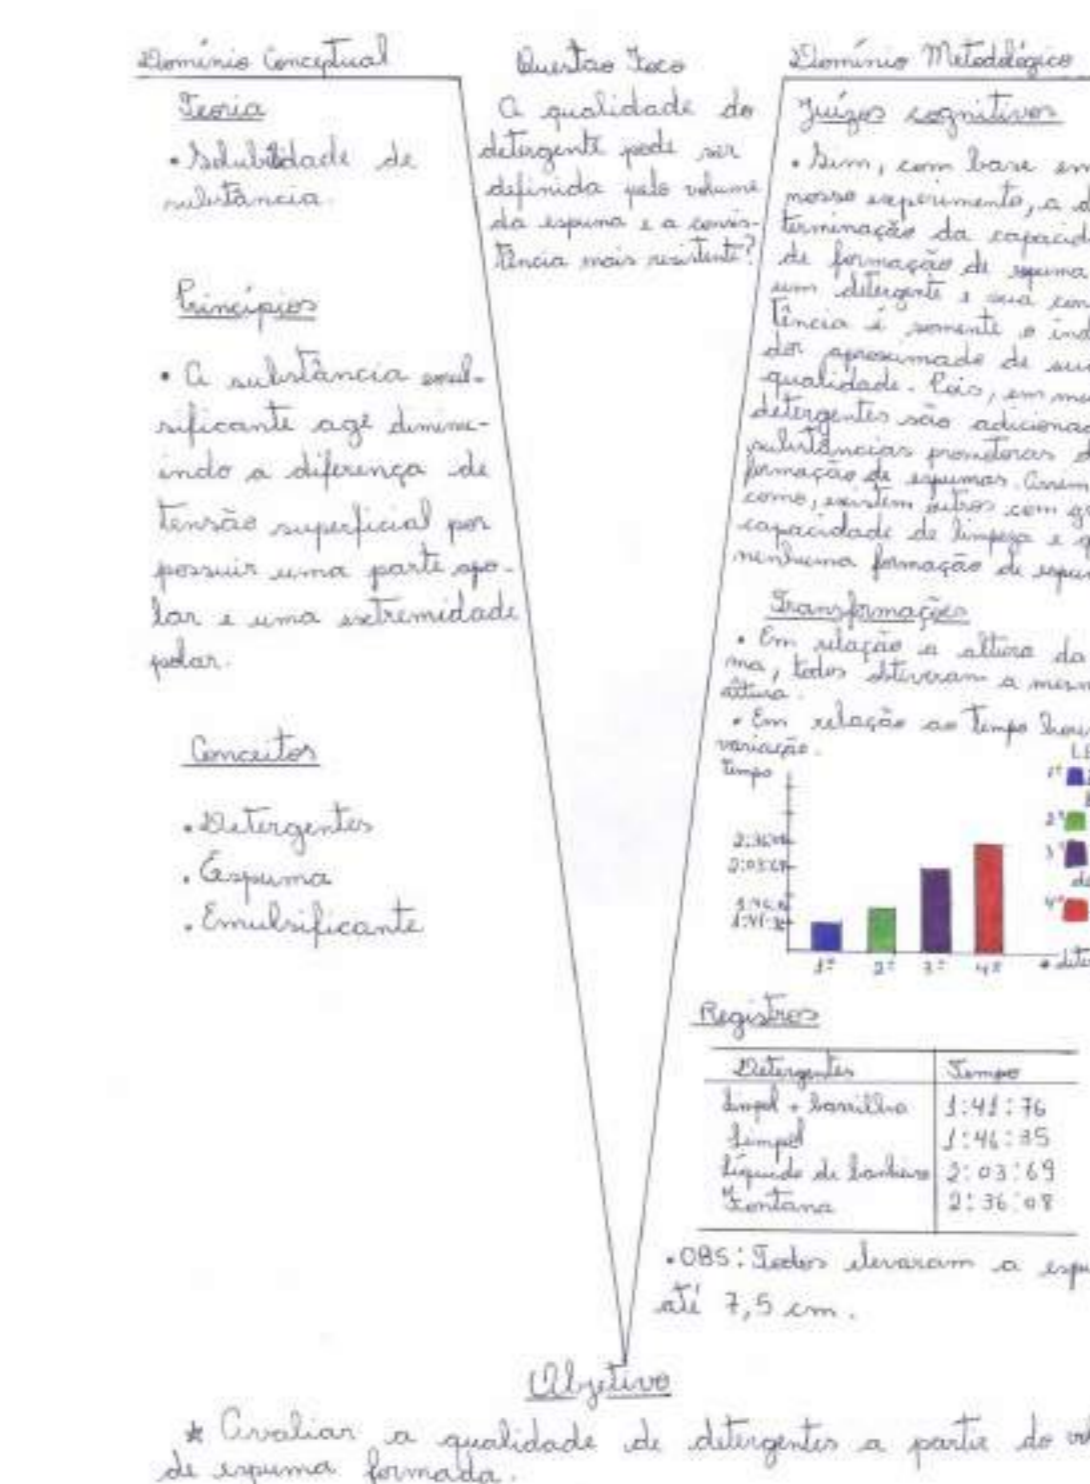 Domínio Conceptual
Teoria
• Solubilidade de
substância.
Princípios
• A substância emul-
sificante age diminu-
indo a diferença de
tensão superficial por
possuir uma parte apo-
lar e uma extremidade
polar.
Conceitos
• Detergentes
• Espuma
• Emulsificante
Questao Foco
A qualidade do
detergente pode ser
definida pelo volume
da espuma e a consis-
tência mais resistente?
Domínio Metodológico
Juízos cognitivos
• Sim, com base em
nosso experimento, a d
terminação da capacid
de formação de espuma
um detergente e sua con
tência é somente o ind
dor aproximado de su
qualidade. Pois, em mu
detergentes são adiciona
substâncias promotoras d
formação de espumas. Assim
como, existem outros com g
capacidade de limpeza e q
nenhuma formação de espu
Transformações
• Em relação a altura da
ma, todos obtiveram a mesm
altura.
• Em relação ao tempo hou
variação.
tempo
LE
1º
2:36:08
2º
2:03:69
3º
de
4º
1:41:76
1º 2º 3º 4º
• deter
Registros
Detergentes Tempo
Limpol + barrilha 1:41:76
Limpol 1:46:35
Líquido de banheiro 2:03:69
Fontana 2:36:08
• OBS: Todos elevaram a espu
até 7,5 cm.
Objetivo
* Avaliar a qualidade de detergentes a partir do vol
de espuma formada.